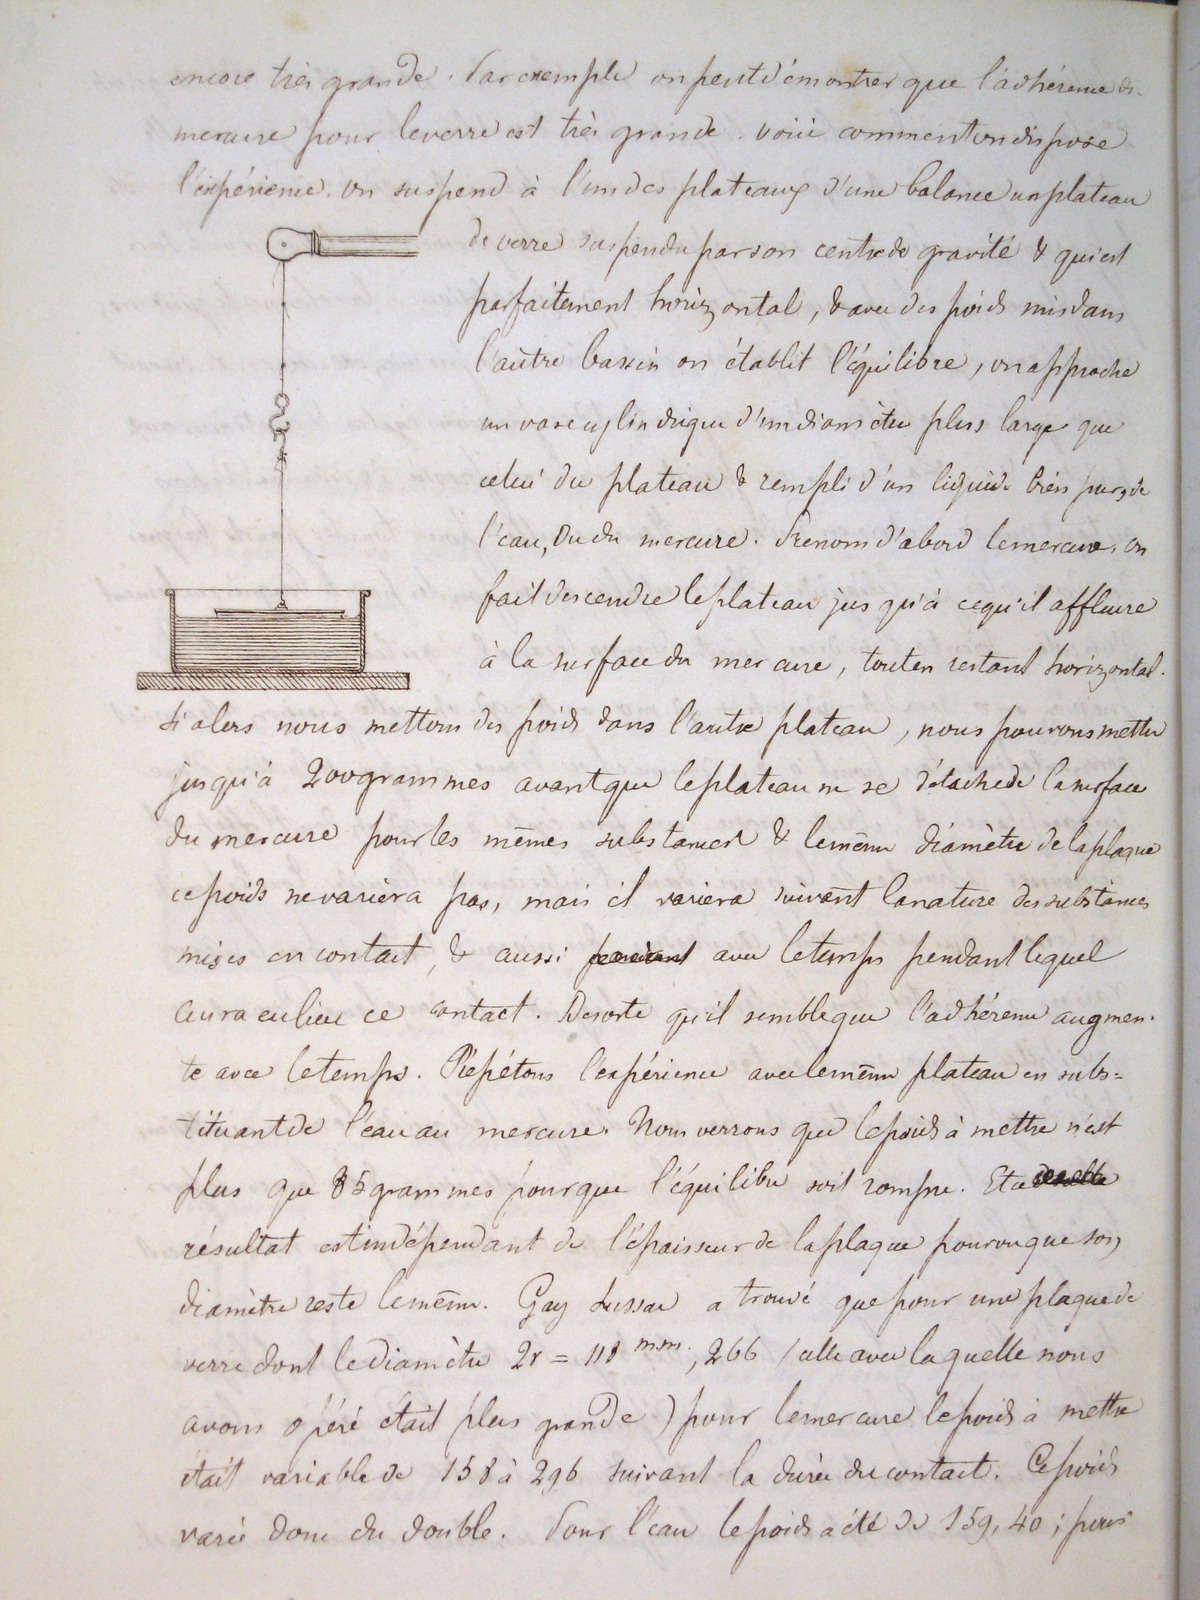 encore très grande. Par exemple on peut démontrer que l'adhérence du
mercure pour le verre est très grande. voici comment on dispose
l'expérience. on suspend à l'un des plateaux d'une balance un plateau
de verre suspendu par son centre de gravité & qui est
parfaitement horizontal, & avec des poids mis dans
l'autre bassin on établit l'équilibre, on approche
un vase cylindrique d'un diamètre plus large que
celui du plateau & rempli d'un liquide bien pur, de
l'eau, ou du mercure. Prenons d'abord le mercure, on
fait descendre le plateau jusqu'à ce qu'il affleure
à la surface du mercure, tout en restant horizontal.
Si alors nous mettons des poids dans l'autre plateau, nous pourrons mettre
jusqu'à 200 grammes avant que le plateau ne se détache de la surface
du mercure pour les mêmes substances & le même diamètre de la plaque
ce poids ne variera pas, mais il variera suivant la nature des substances
mises en contact, & aussi avec le temps pendant lequel
aura eu lieu ce contact. De sorte qu'il semble que l'adhérence augmen-
te avec le temps. Répétons l'expérience avec le même plateau en subs=
tituant de l'eau au mercure. Nous verrons que le poids à mettre n'est
plus que 85 grammes pour que l'équilibre soit rompu. Et ce
résultat est indépendant de l'épaisseur de la plaque pourvu que son
diamètre reste le même. Gay Lussac a trouvé que pour une plaque de
verre dont le diamètre 2r = 118 mm., 266 (celle avec laquelle nous
avons opéré était plus grande) pour le mercure le poids à mettre
était variable de 158 à 296 suivant la durée du contact. Ce poids
varie donc du double. Pour l'eau le poids a été de 159,40 ; puis